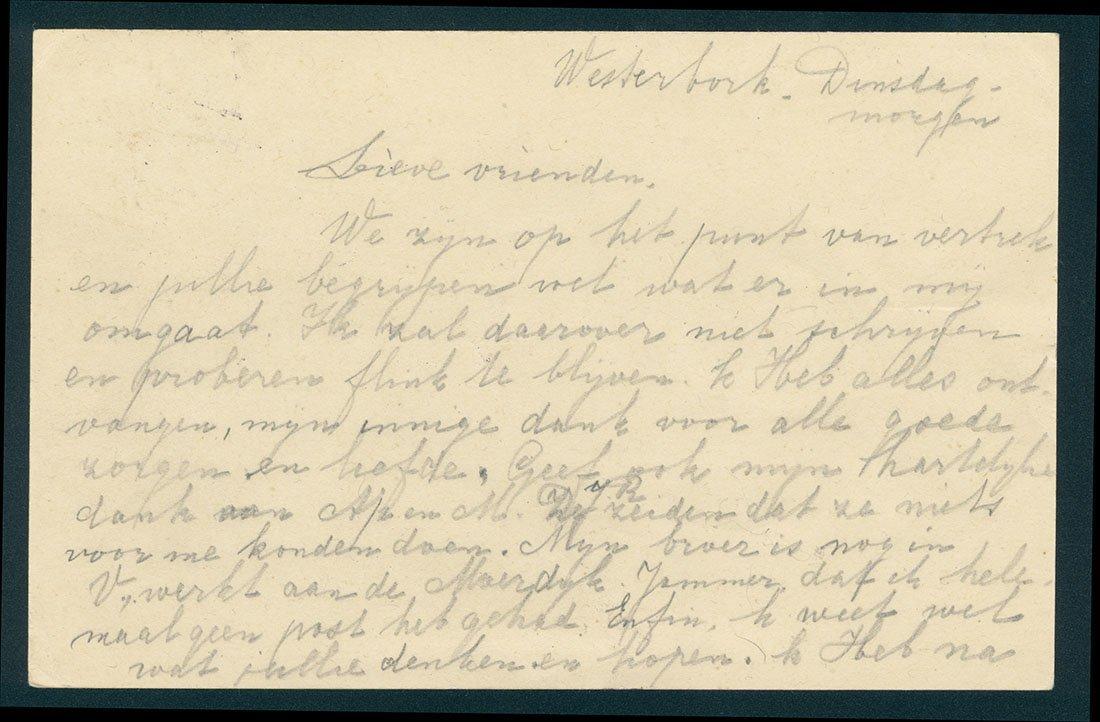 Westerbork - Dinsdag-
morgen
Lieve vrienden.
We zijn op het punt van vertrek
en jullie begrijpen wel wat er in mij
omgaat. Ik zal daarover niet schrijven
en proberen flink te blijven. Ik Heb alles ont-
vangen, mijn innige dank voor alle goede
zorgen en liefde. Geef ook mijn hartelijke
dank aan Ap en M. Zij zeiden dat ze niets
voor me konden doen. Mijn broer is nog in
V., werkt aan de Moerdijk. Jammer dat ik hele-
maal geen post heb gehad. Enfin, ik weet wel
wat jullie denken en hopen. Ik Heb na